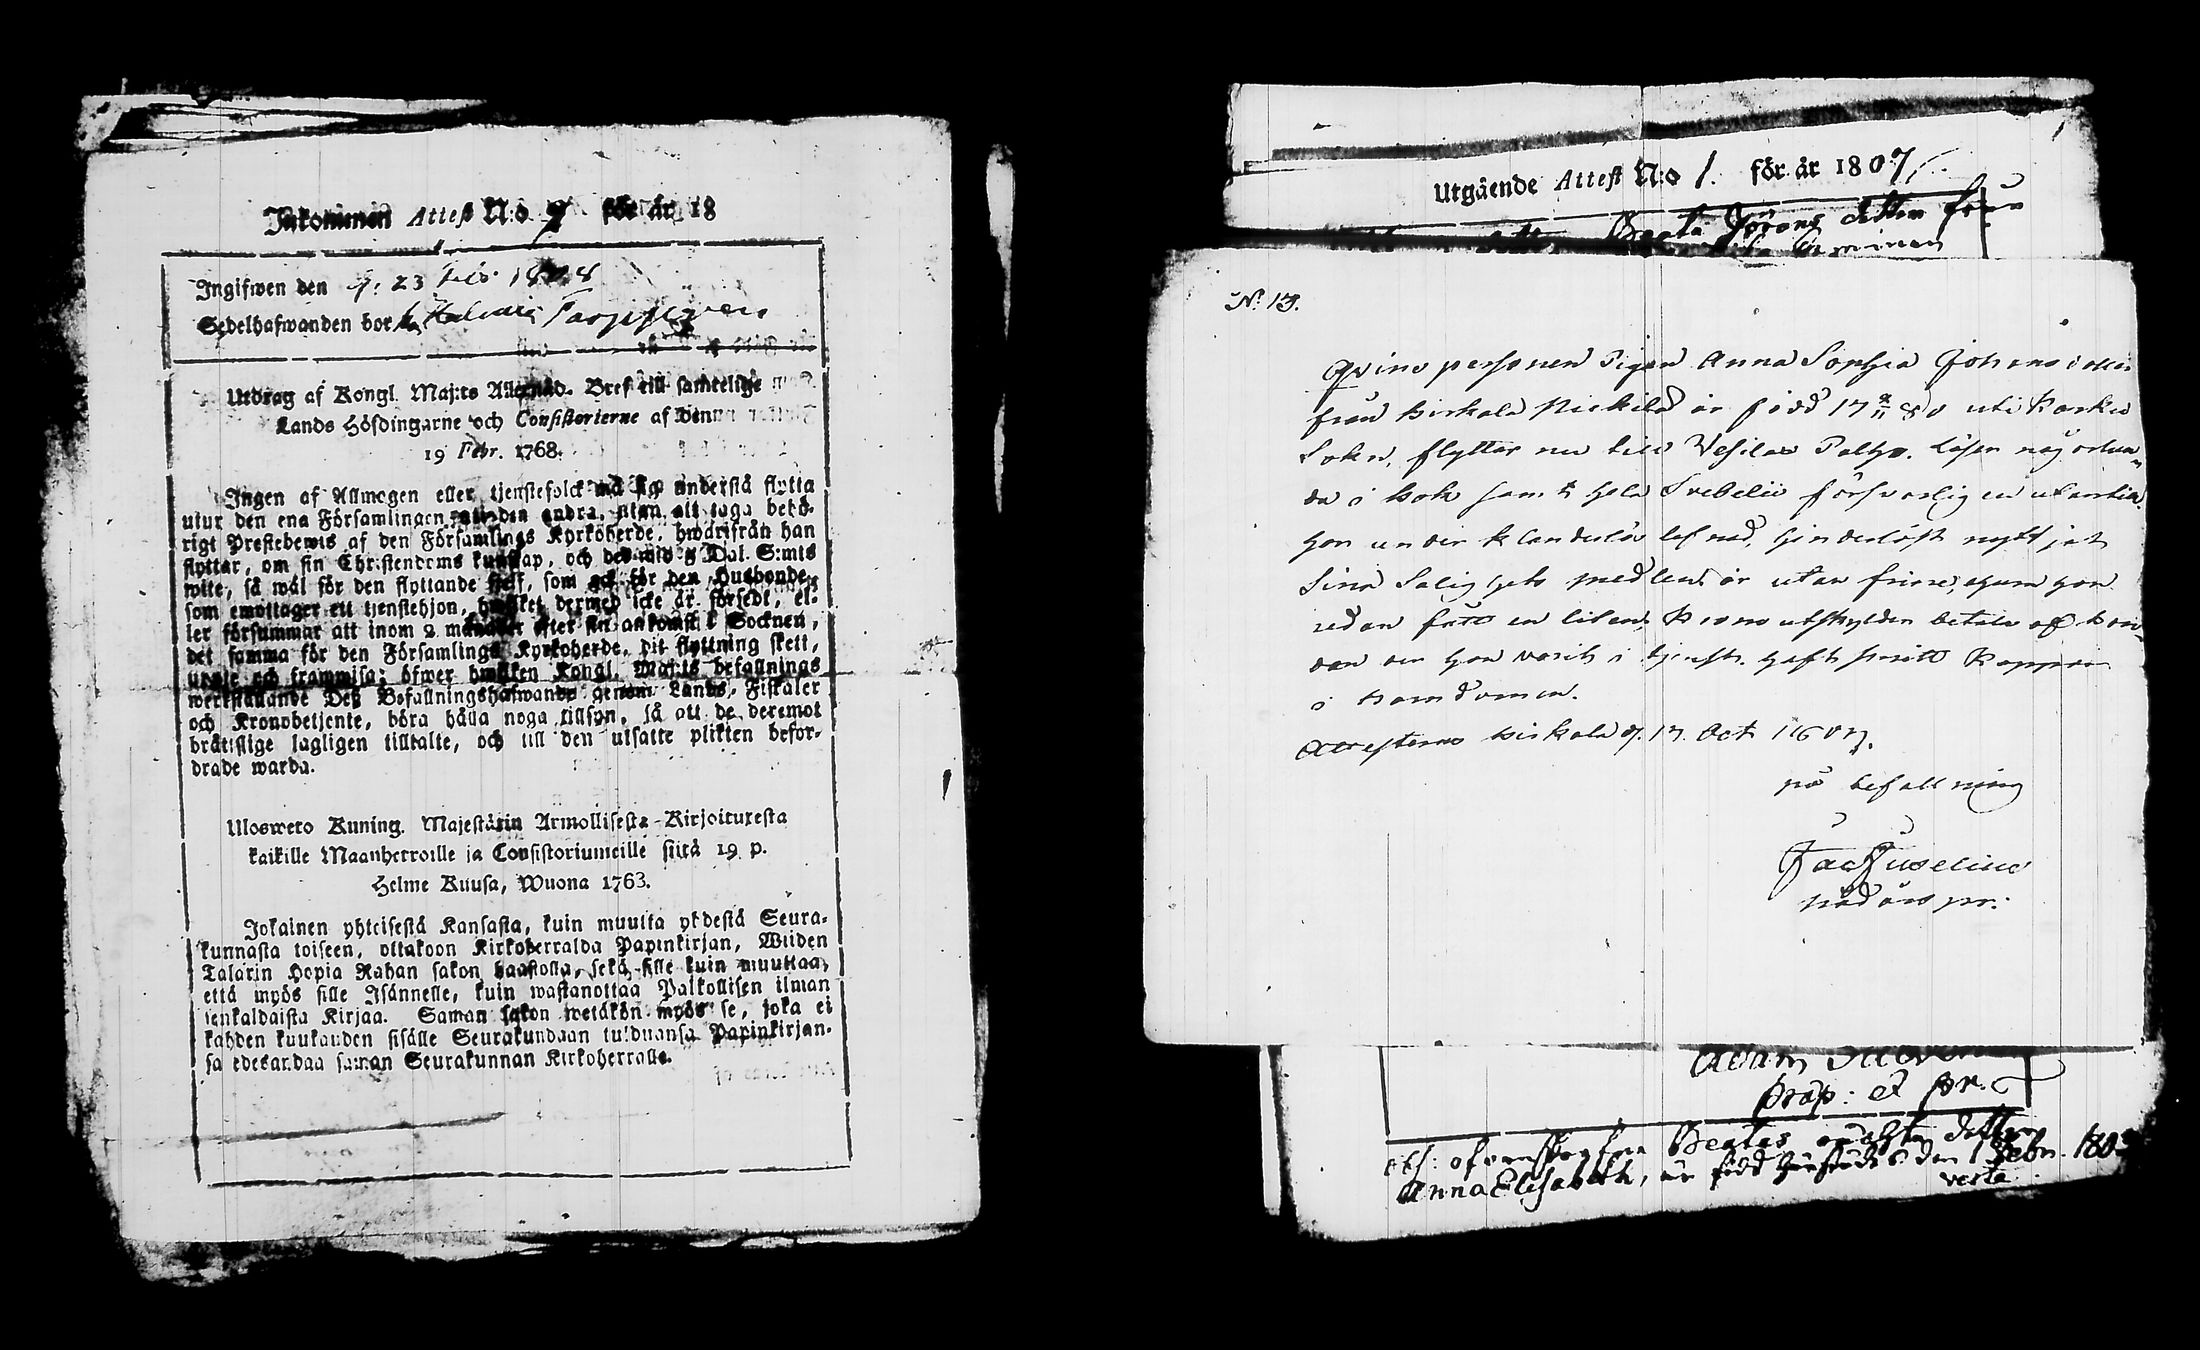 Inkommen Attest N:o 9 för år 18
Ingifwen den d. 23 1808
Sedelhafwanden bor
Utdrag af Kongl. Maj:ts Allernåd. Bref till samtelige
Lands Höfdingarne och Consistorierne af den
19 Febr. 1768.
Ingen af Allmogen eller tjenstefolck må sig understå flytta
utur den ena Församlingen till den andra, utan att taga behö-
rigt Prestebewis af den Församlings Kyrkoherde, hwarifrån han
flyttar, om sin Christendoms kunskap, och det wid 5 Dal. S:mts
wite, så wäl för den flyttande sielf, som ock för den Husbonde,
som emottager ett tjenstehjon, hwilket dermed icke är försedt, el-
ler försummar att inom 2 månader efter sin ankomst i Socknen,
det samma för den Församlings Kyrkoherde, dit flyttning skett,
upte och frammisa; öfwer hwilken Kongl. Maj:ts befallnings
werkställande Deß Befallningshafwande genom Lands-Fiskaler
och Kronobetjente, böra hålla noga tillsyn, så att de deremot
bråttslige lagligen tilltalte, och till den utsatte plikten befor-
drade warda.
Ulosweto Kuning. Majestätin Armollisesta Kirjoituresta
kaikille Maanherroille ja Consistoriumeille siitä 19 p.
Helme Kuusa, Wuona 1763.
Jokainen yhteisestä Kansasta, kuin muutta yhdestä Seura-
kunnasta toiseen, ottakoon Kirkoherralda Papinkirjan, Wiiden
Talarin Hopia Rahan sakon haastolla, sekä sille kuin muuttaa,
että myös sille Isännelle, kuin wastanottaa Palkollisen ilman
senkaldaista Kirjaa. Saman sakon wetäkön myös se, joka ei
kahden kuukauden sisälle Seurakundaan tulduansa Papinkirjan-
sa edesandaa saman Seurakunnan Kirkoherralle.
Utgående Attest N:o 1. för år 1807.
Beata Görans dotter från
N:o 13.
Qvins personen Pigan Anna Sophia Johansdotter
från Kirkala är född 17 80 uti Karku
Sokn, flyttar nu till Vesilax Palho. Läser någorlun-
da i bok samt hela Svebelii försvarlig en utantill.
Hon under klanderlös lefnad, hinderlöst nyttjat
Sina Salighets medlen, är utan frieri, ehuru hon
redan fått en liten, Krono utskylder betala af bon-
den der hon varit i tjenst. Haft smitto Koppor
i barndomen.
Attesteras Kirkala d. 17. Oct 1807.
på befallning
Jac Juselius
nådårs pr.
Adam
prop: et pr.
obs: ofvanskrefne Beatas oächta dotter
Anna Elisabeth, är född härstädes den 1 Febr. 1803
verte